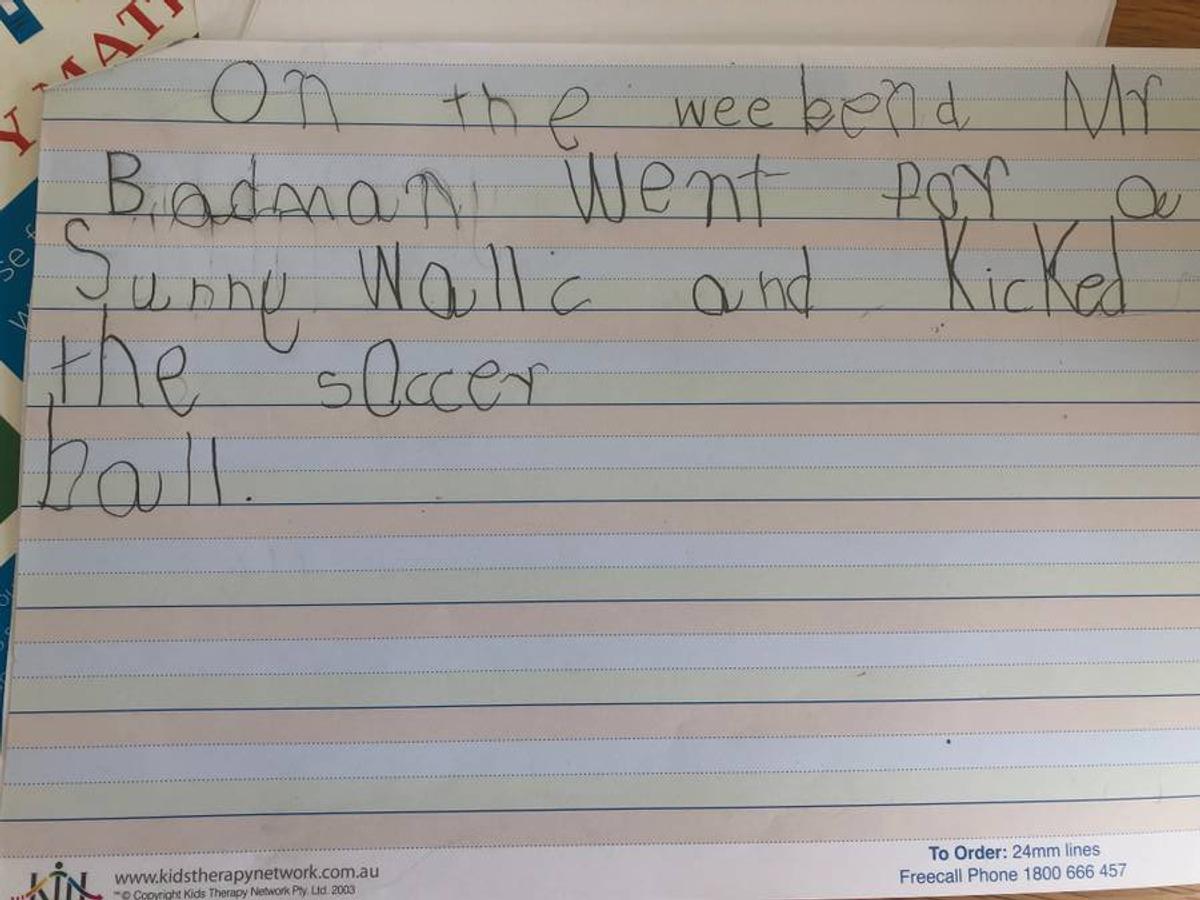 Y MATH
On the weebend Mr
Badman Went por a
Sunny Wallc and Kicked
the sOccer
ball.
www.kidstherapynetwork.com.au
© Copyright Kids Therapy Network Pty. Ltd. 2003
To Order: 24mm lines
Freecall Phone 1800 666 457